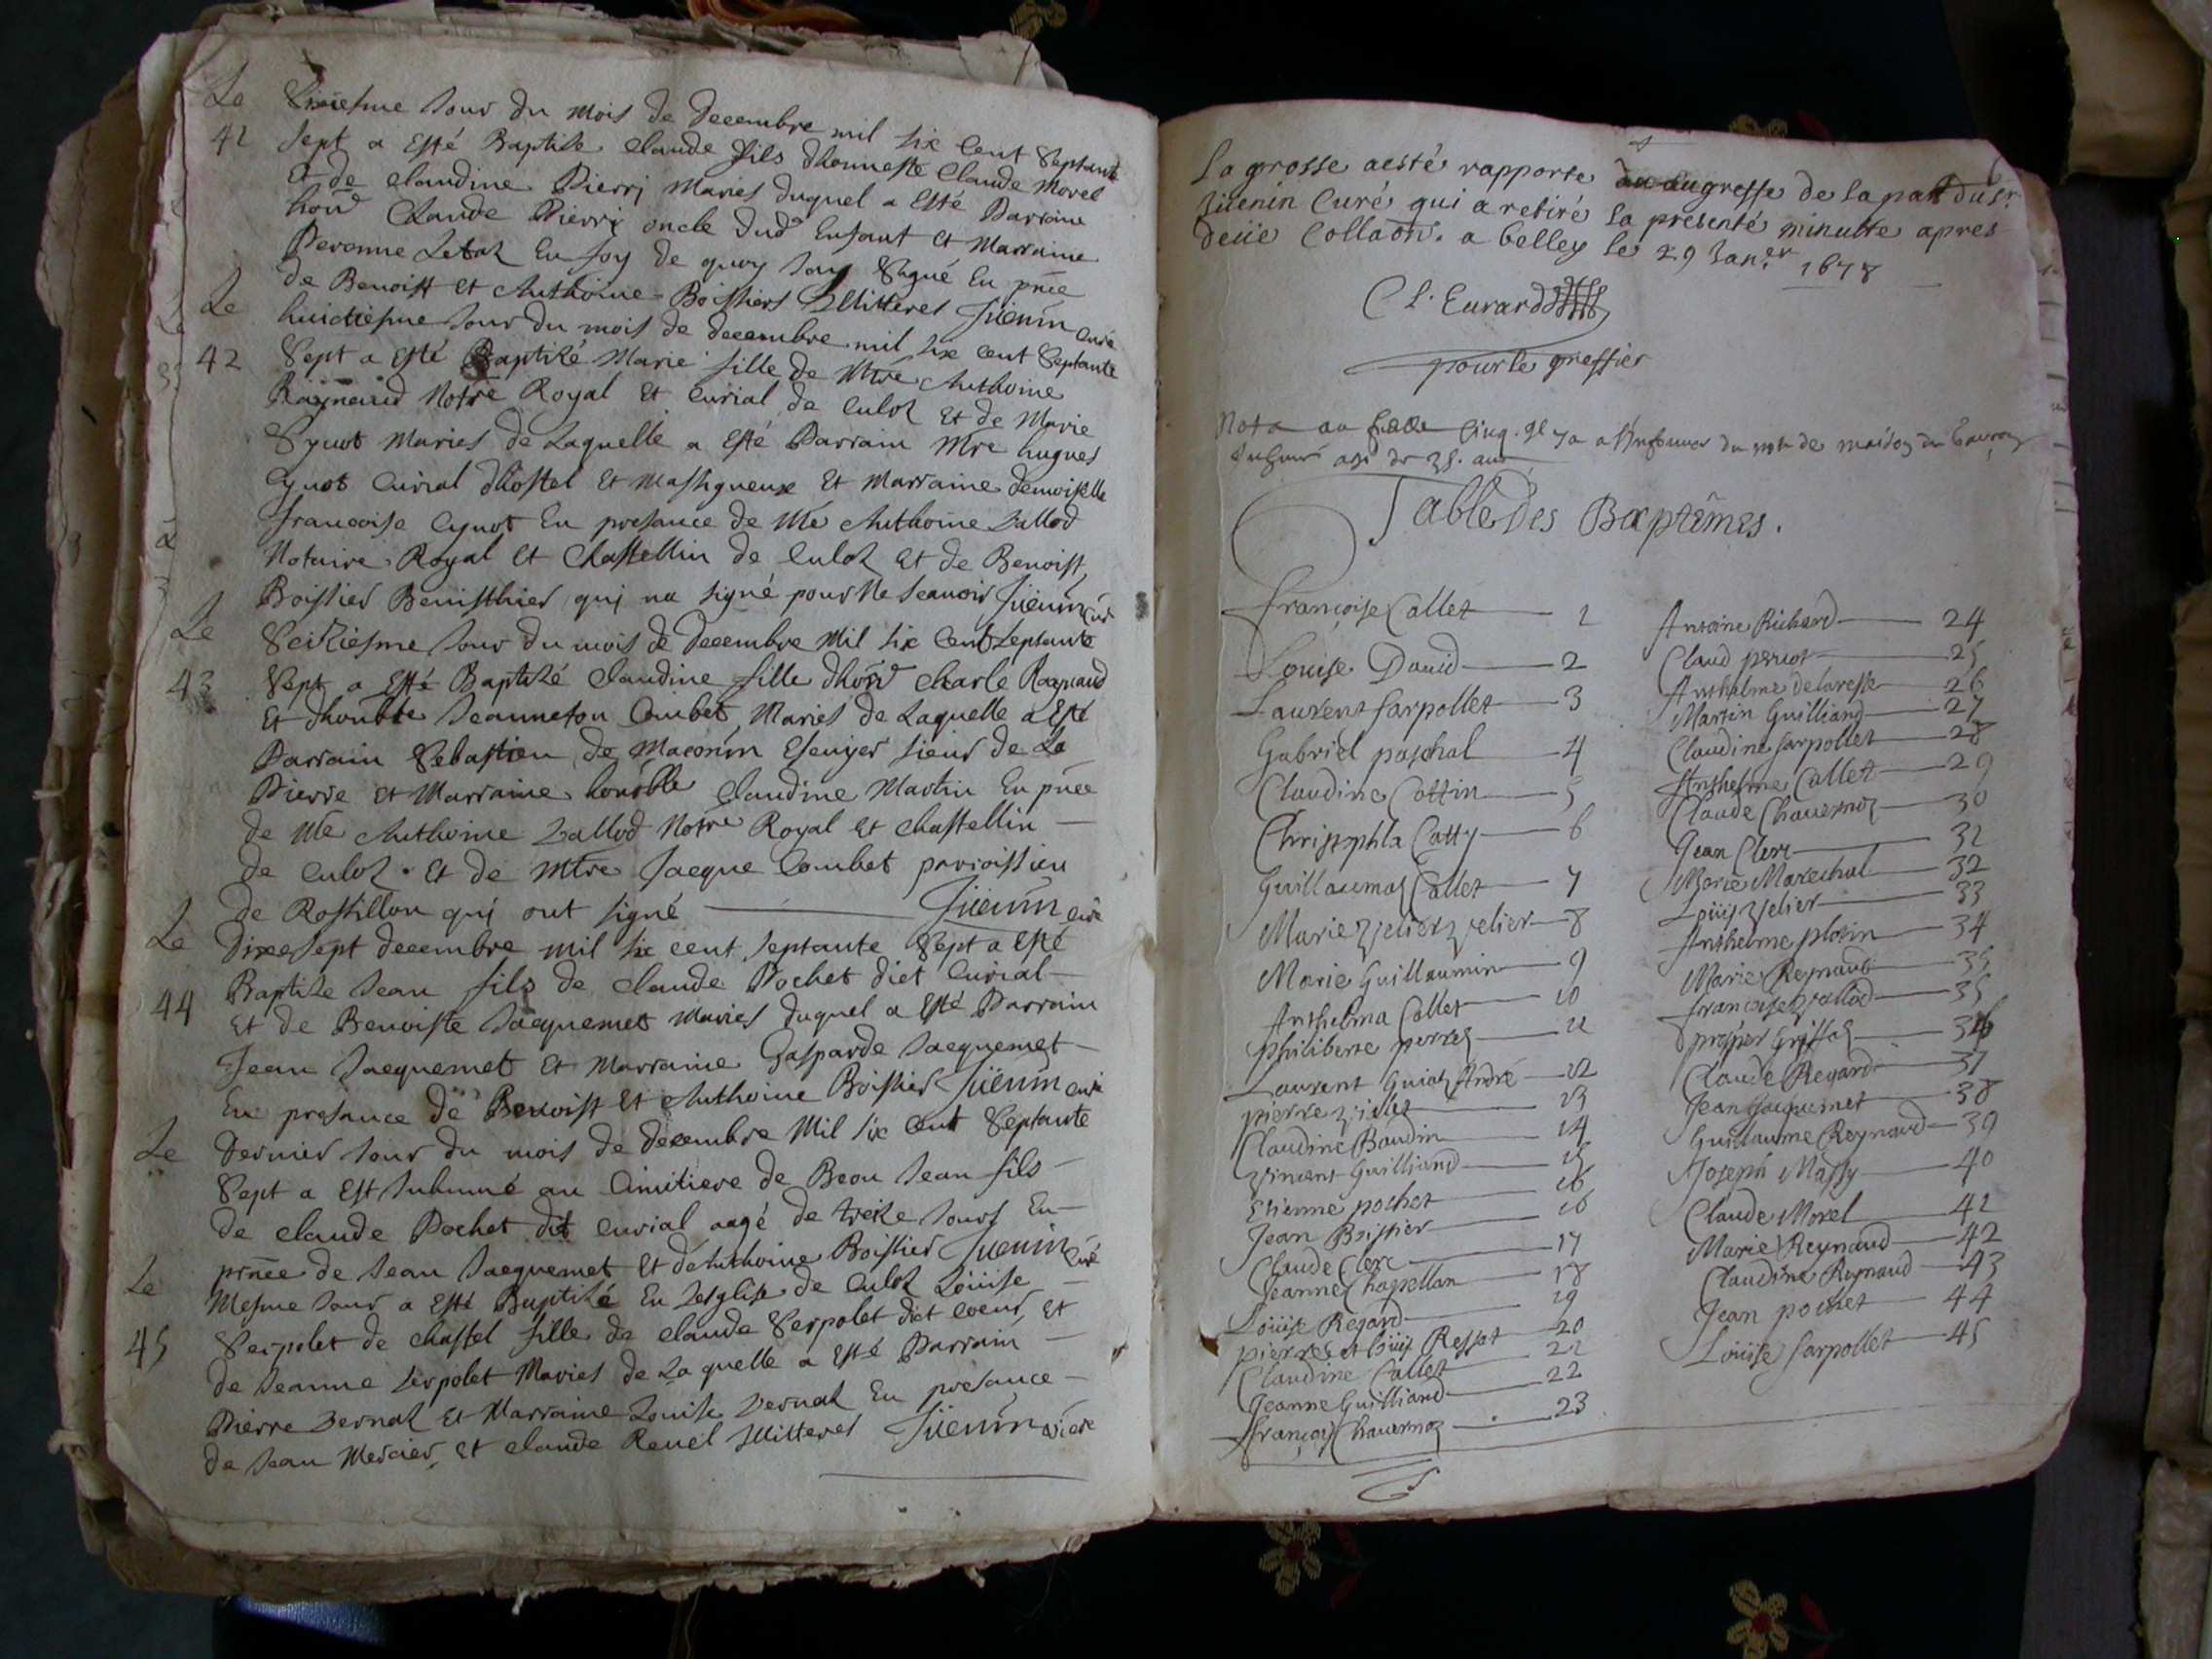 Le
41
sixiesme Jour du mois de decembre mil six cent septante
sept a esté Baptise Claude fils dhonneste Claude Morel
et de Claudine Pierrj Maries duquel a esté Parraine
hon Claude Pierrj oncle dud Enfant et Marraine
Peronne Letraz En foy de quoy Jay signé En pñce
de Benoist et Anthoine Boissiers Illitteres Jüenin curé
Le
42
huictiesme Jour du mois de decembre mil six cent Septante
Sept a esté Baptizé Marie fille de Mtre Anthoine
Raynaud Notre Royal et Curial de Culoz et de Marie
Cyvot Maries de Laquelle a esté Parrain Mre hugues
Cyvot Curial dhostel et Massigneux et Marraine demoiselle
francoise Cyvot En presance de Me Anthoine Vallod
Notaire Royal et Chastellin de Culoz et de Benoist
Boissier Benisthier qui na signé pour Ne Scauoir Jüenin curé
Le
43
Seiziesme Jour du mois de decembre Mil six Cent Septante
Sept a esté Baptizé Claudine fille dhoñ Charle Raynaud
Et dhonble Jeanneton Combet Maries de Laquelle a esté
Parrain Sebastien de Maconin Escuyer sieur de La
Pierre et Marraine honoble Claudine Martin En pñce
de Me Anthoine Vallod Notre Royal et Chastellin
de Culoz. et de Mtre Jacque Combet parroissien
de Rossillon qui ont signé Jüenin curé
Le
44
Dixesept decembre mil six cent septante Sept a esté
Baptize Jean fils de Claude Pochet dict Curial
et de Benoiste Jacquemet Maries duquel a esté Parrain
Jean Jacquemet et Marraine Gasparde Jacquemet
En presance de Benoist et Anthoine Boissier Jüenin curé
Le
Dernier Jour du mois de decembre Mil six Cent Septante
Sept a est Inhumé au Cimitiere de Beon Jean fils
de Claude Pochet dit Curial aagé de treize Jours En
prñce de Jean Jacquemet et dAnthoine Boissier Jüenin curé
Le
45
Mesme Jour a esté Baptizé En Lesglise de Culoz Loüise
Serpolet de Chastel fille de Claude Serpolet dict Coeur, et
de Jeanne Serpolet Maries de Laquelle a esté Parrain
Pierre Vernaz et Marraine Louise Vernaz En presance
de Jean Mercier, et Claude Reuel Illitteres Jüenin
La grosse aesté rapporte au gresse de la part du sr
Juenin Curé qui a retiré la presente minutte apres
deüe Collaon. a belley le 29 Janer 1678
Cl. Eurard
pour le greffier
Nota au
Table des Baptêmes.
Françoise Callet 1
Louise Dauid 2
Laurent sarpollet 3
Gabriel paschal 4
Claudine Cottin 5
Christophla Catty 6
Guillaumaz Callet 7
Marie velier 8
Marie Guillaumin 9
Anthelma Callet 10
philiberte perrez 11
Laurent Guiaz André 12
pierre 13
Claudine Baudin 14
Vincent Guilliand 15
Etienne pochet 16
Jean Boissier 16
Claude Clerc 17
Jeanne Chapellan 18
Loüise Regard 19
pierre et loüis Ressat 20
Claudine Callet 21
Jeanne Guilliand 22
François Chauernoz 23
Antoine Richard 24
Claud perrot 25
Anthelme delaresse 26
Martin Guilliand 27
Claudine sarpollet 28
Anthelme Callet 29
Claude Chauernoz 30
Jean Clerc 31
Marie Marechal 32
Loüis velier 33
Anthelme plotin 34
Marie Reynaud 35
françoise Vallod 35
prosper Griffaz 36
Claude Regard 37
Jean Jacquemet 38
Guillaume Reynaud 39
Joseph Massy 40
Claude Morel 41
Marie Reynaud 42
Claudine Reynaud 43
Jean pochet 44
Loüise sarpollet 45